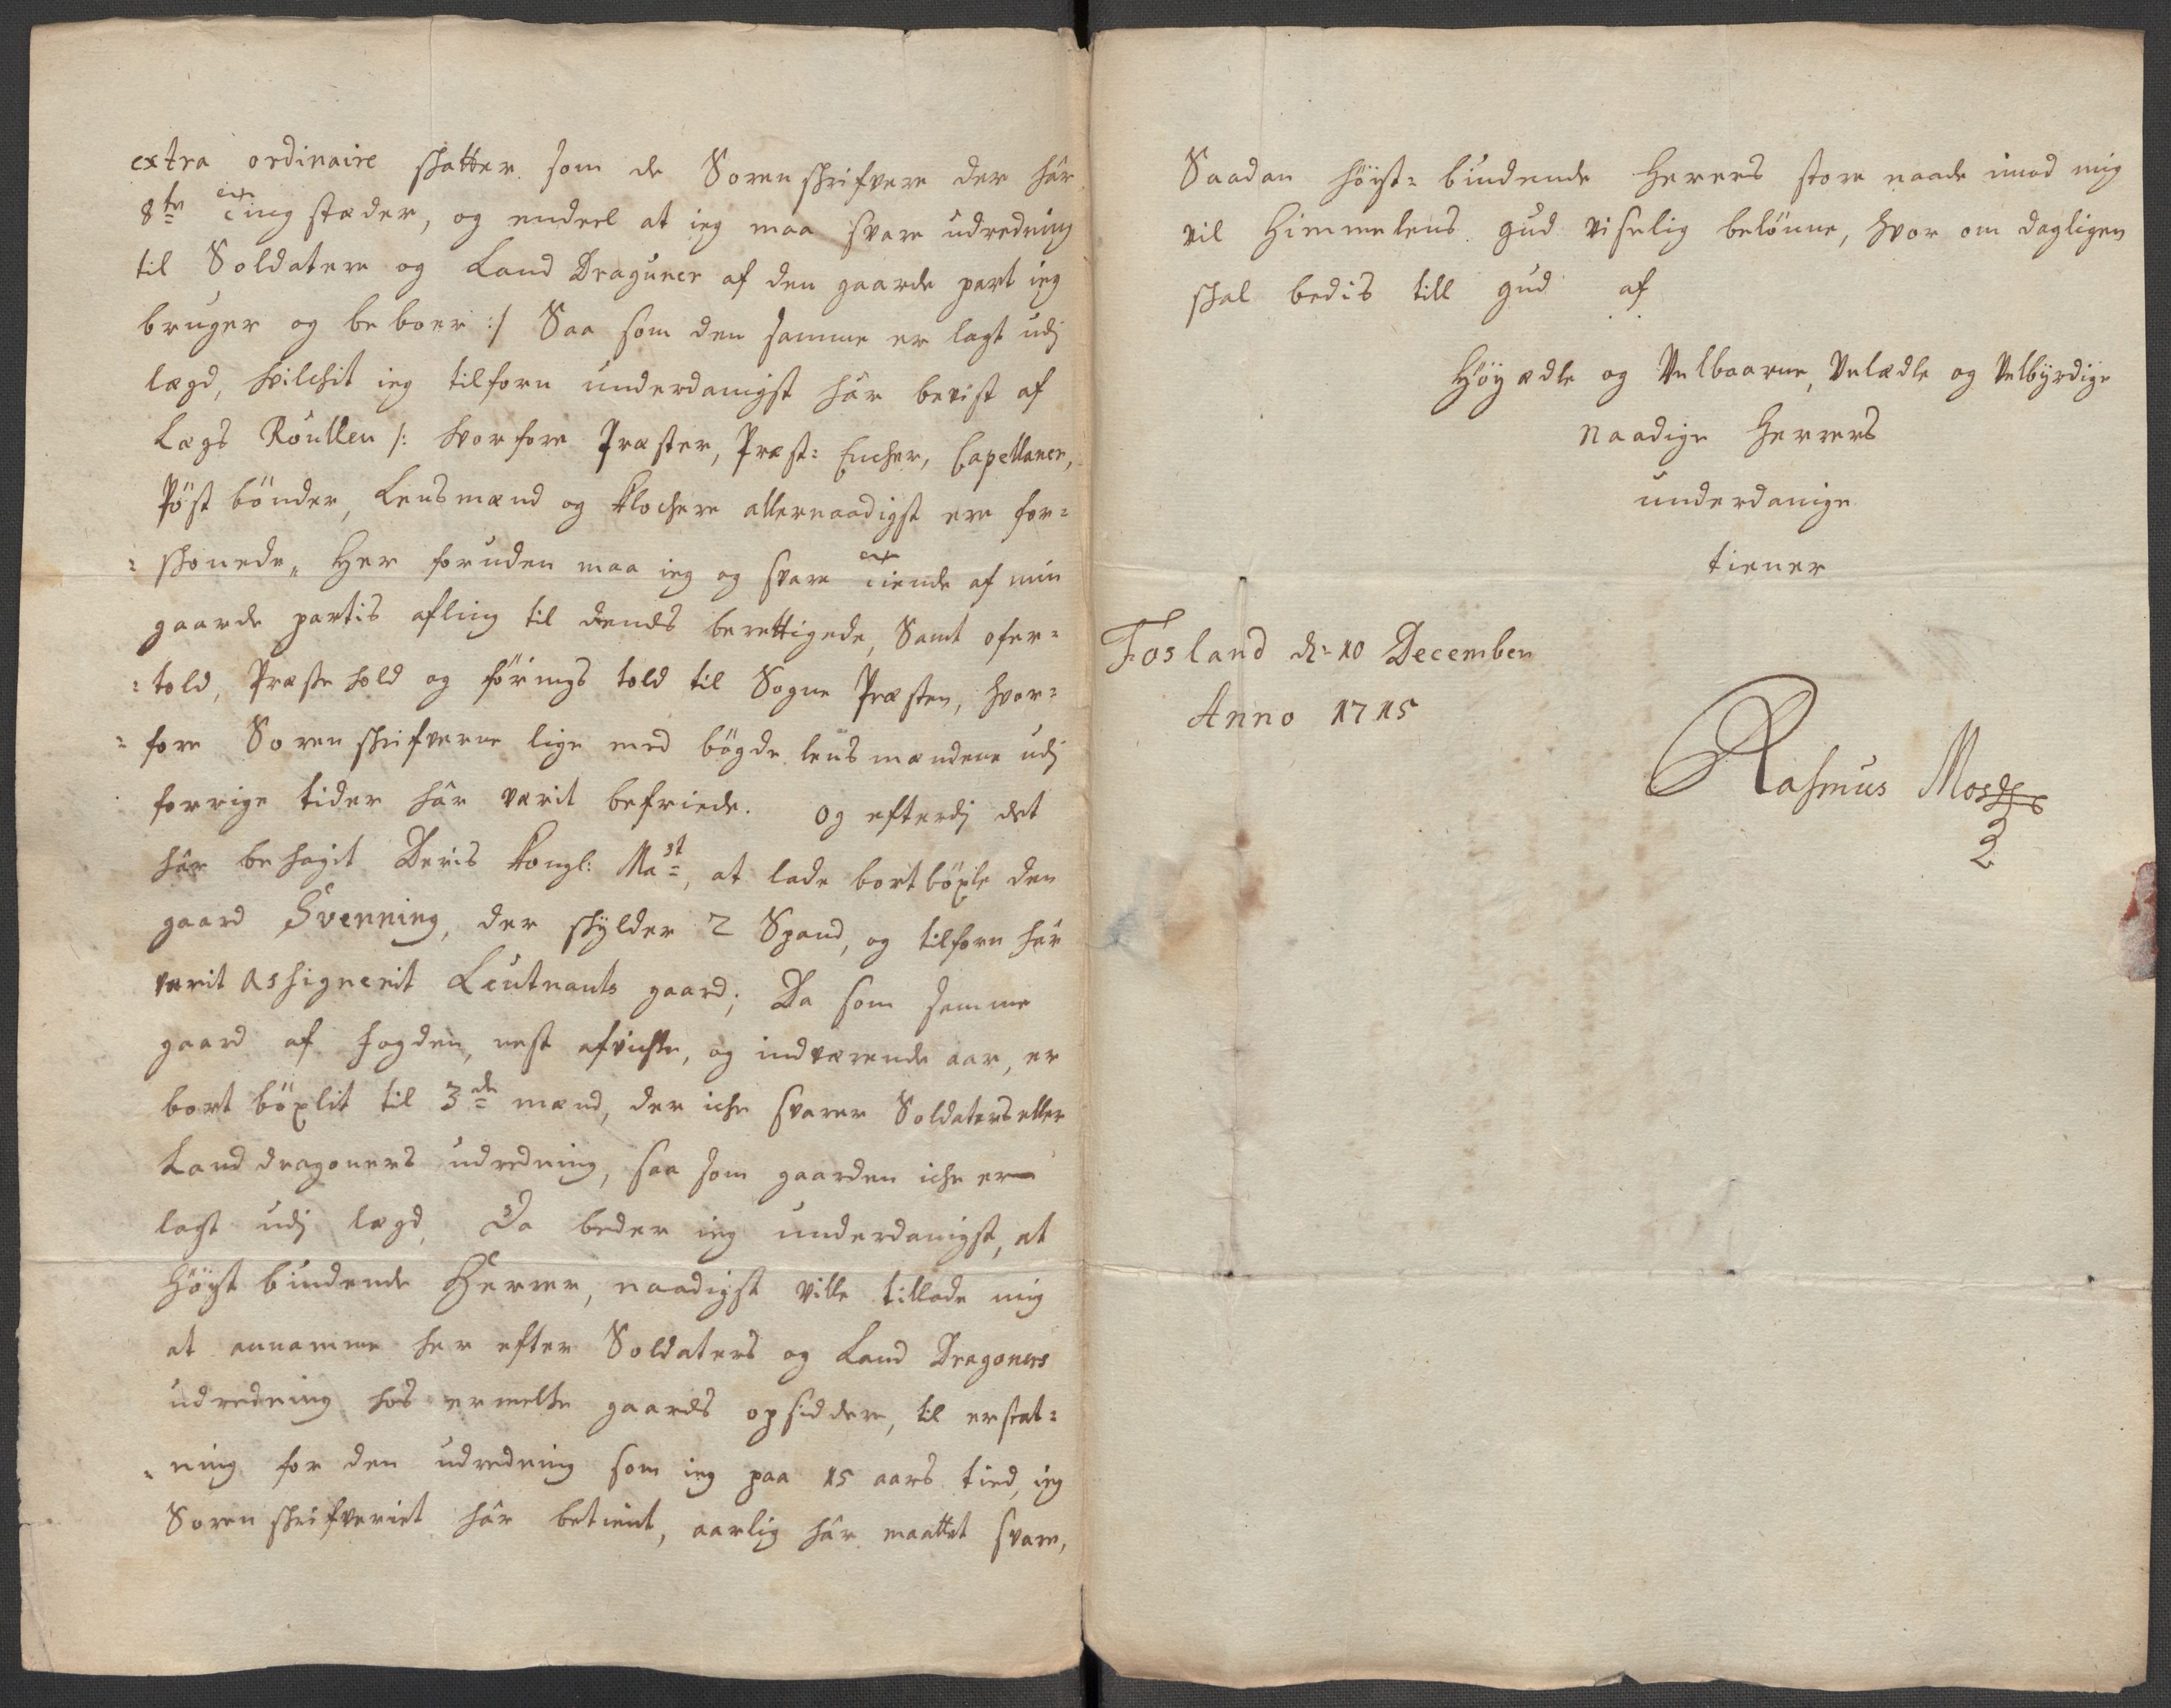 extra ordinaire skatter som de Sorenskrifvere der har
8te ting stæder, og endeel at ieg maa svare udredning
til Soldatere og Land Draguner af den gaarde part ieg
bruger og beboer :/ Saa som den samme er lagt udj
lægd, hvilchit ieg tilforn underdanigst har bevist af
Lægs Roullen /: hvorfore Præster, Præst= Encher, Capellaner,
Pöst bönder, Lensmænd og Klochere allernaadigst ere for=
=skonede„ Her foruden maa ieg og svare tiende af min
gaarde partis afling til dends berettigede, Samt ofer=
=told, Præste hold og förings told til Sogne Præsten, hvor=
=fore Sorenskrifverne lige med bögde lens mændene udj
forrige tider har værit befriede. og efterdj det
har behagit Deris Kongl: Mast, at lade bortböxle den
gaard Svenning, der skylder 2 Spand, og tilforn har
værit Assignerit Leutnants gaard; Da som samme
gaard af fogden, nest afvichte, og indværende aar, er
bort böxlit til 3de mænd, der iche svarer Soldaters eller
Land dragoners udredning, saa som gaarden iche er
lagt udj lægd, Da beder ieg underdanigst, at
höyst biudende Herrer, naadigst ville tillade mig
at annamme her efter Soldaters og Land Dragoners
udredning hos ermelte gaards opsiddere, til erstat=
=ning for den udredning som ieg paa 15 aars tied, ieg
Sorenskrifveriet har betient, aarlig har maattet svare,
Saadan höyst= biudende Herrers store naade imod mig
vil Himmelens gud viselig belönne, hvor om dagligen
skal bedis till gud af
Höyædle og Velbaarne, Velædle og Velbyrdige
Naadige Herrers
underdanige
tiener
Fosland d: 10 December
Anno 1715
Rasmus